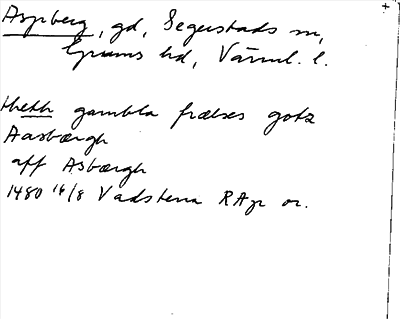 Aspberg, gd, Segerstads sn,
Grums hd, Värml. l.
theth gambla frælses gotz
Aasbærgh
aff Asbærgh
1480 16/8 Vadstena RAp or.